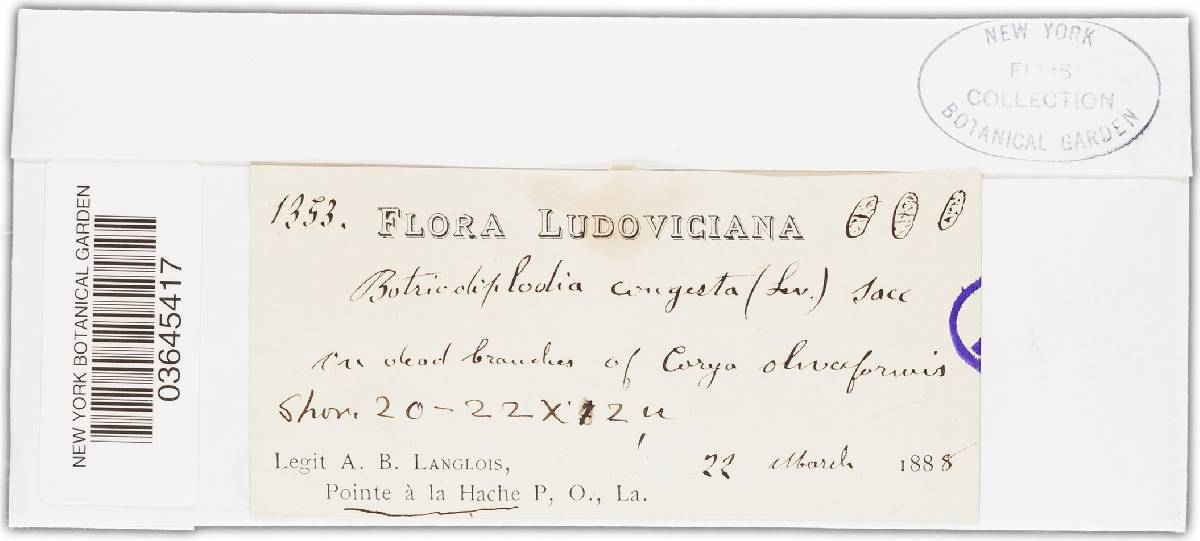 NEW YORK
ELLIS
COLLECTION
BOTANICAL GARDEN
NEW YORK BOTANICAL GARDEN
03645417
1353. FLORA LUDOVICIANA
Botriodiplodia congesta (Lev.) Sacc
on dead branches of Carya olivaeformis
Spor. 20-22 X 12 u
Legit A. B. LANGLOIS, 22 March 1888
Pointe à la Hache P, O., La.